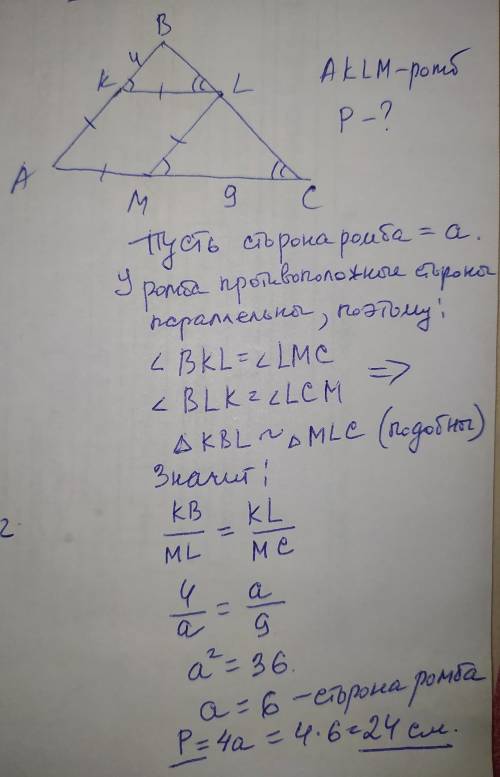 B
4
K
L
A
M
9
C
AKLM-ромб
P-?
Пусть сторона ромба = a.
У ромба противоположные стороны
параллельны, поэтому:
∠BKL=∠LMC
∠BLK=∠LCM
=>
△KBL~△MLC (подобны)
Значит:
KB/ML = KL/MC
4/a = a/9
a²=36.
a=6 -сторона ромба
P=4a=4·6=24 см.
2